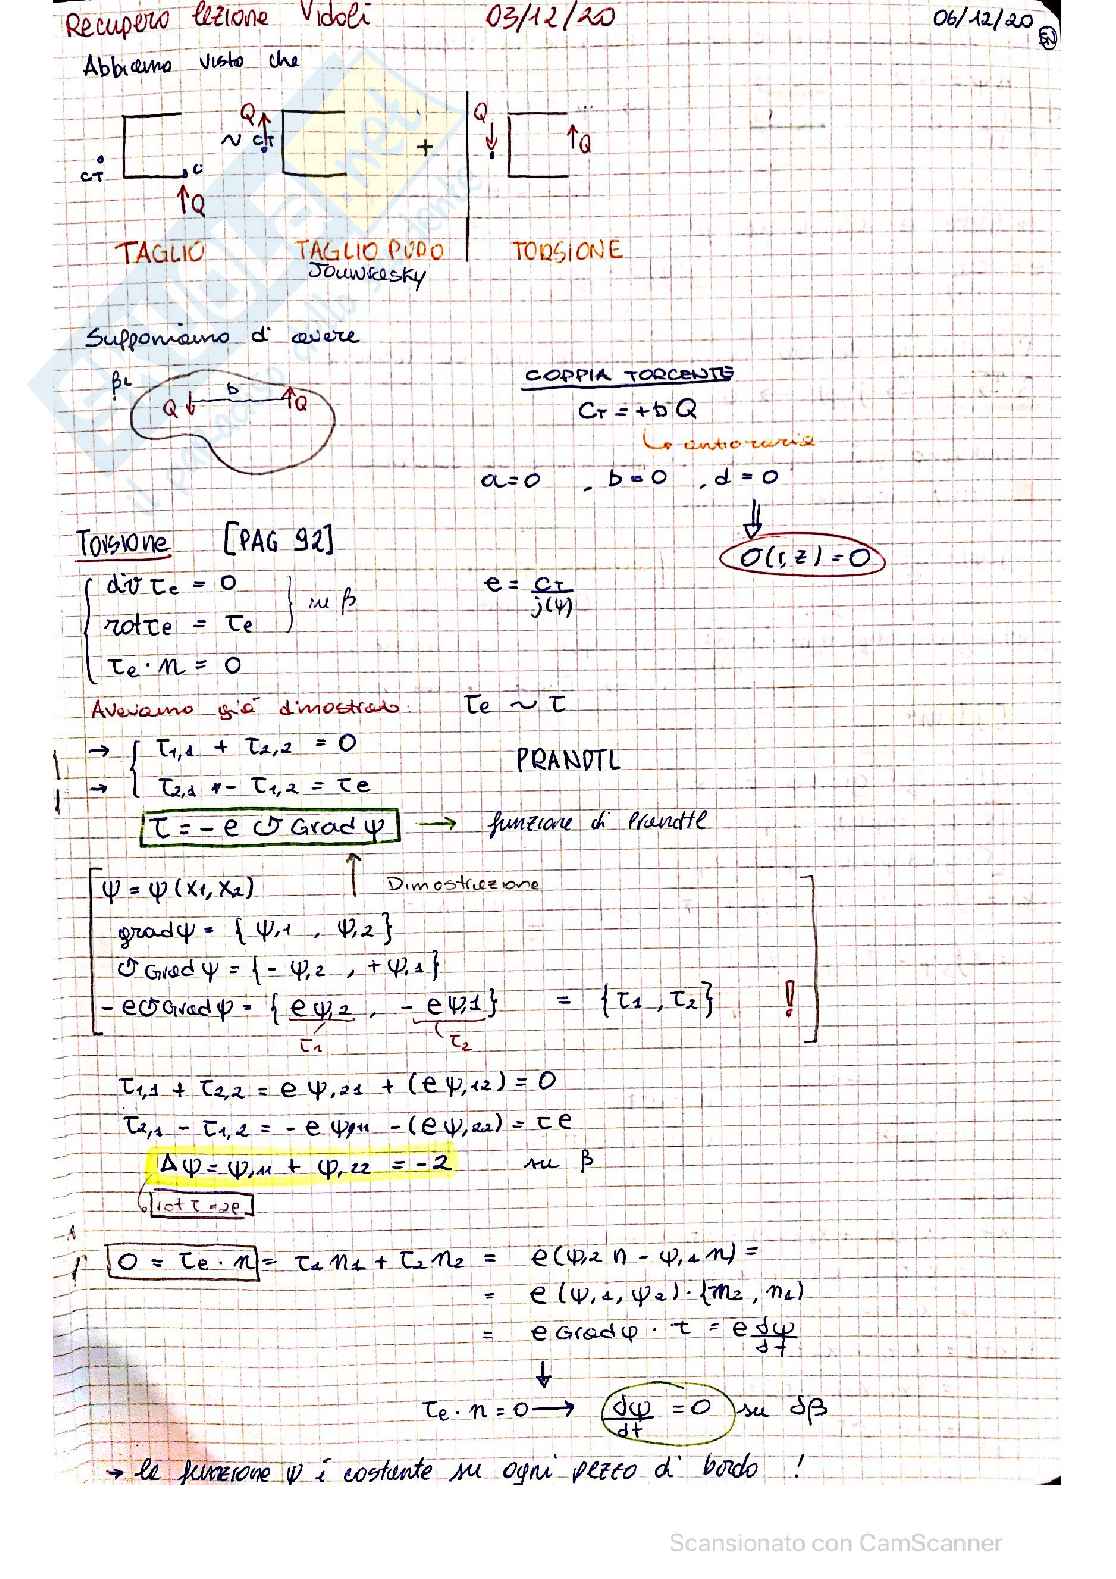 Recupero lezione Vidoli 03/12/20 06/12/20
Abbiamo visto che
Q Q
CT C ~ CT + Q
Q
TAGLIO TAGLIO PURO TORSIONE
Jouwresky
Supponiamo di avere
β b COPPIA TORCENTE
Q Q CT = +bQ
↳ antioraria
a=0 , b=0 , d=0
⇓
Torsione [PAG 92] σ(r,z)=0
div τe = 0 e = CT/j(ψ)
rot τe = τe su β
τe · n = 0
Avevamo già dimostrato: τe ~ τ
→ τ1,1 + τ2,2 = 0 PRANDTL
→ τ2,1 - τ1,2 = τe
τ = -e ↺ Grad ψ → funzione di Prandtl
ψ = ψ(x1,x2) ↑ Dimostrazione
grad ψ = {ψ,1 , ψ,2}
↺ Grad ψ = {-ψ,2 , +ψ,1}
-e↺Grad ψ = {eψ,2 , -eψ,1} = {τ1,τ2} !
τ1 τ2
τ1,1 + τ2,2 = eψ,21 + (eψ,12) = 0
τ2,1 - τ1,2 = -eψ,11 -(eψ,22) = τe
Δψ = ψ,11 + ψ,22 = -2 su β
rot τ = 2e
0 = τe · n = τ1n1 + τ2n2 = e(ψ,2 n - ψ,1 n) =
= e(ψ,1, ψ2)·{n2, n1)
= e Grad ψ · τ = e dψ/dt
↓
τe · n = 0 → dψ/dt = 0 su δβ
→ la funzione ψ è costante su ogni pezzo di bordo !
Scansionato con CamScanner